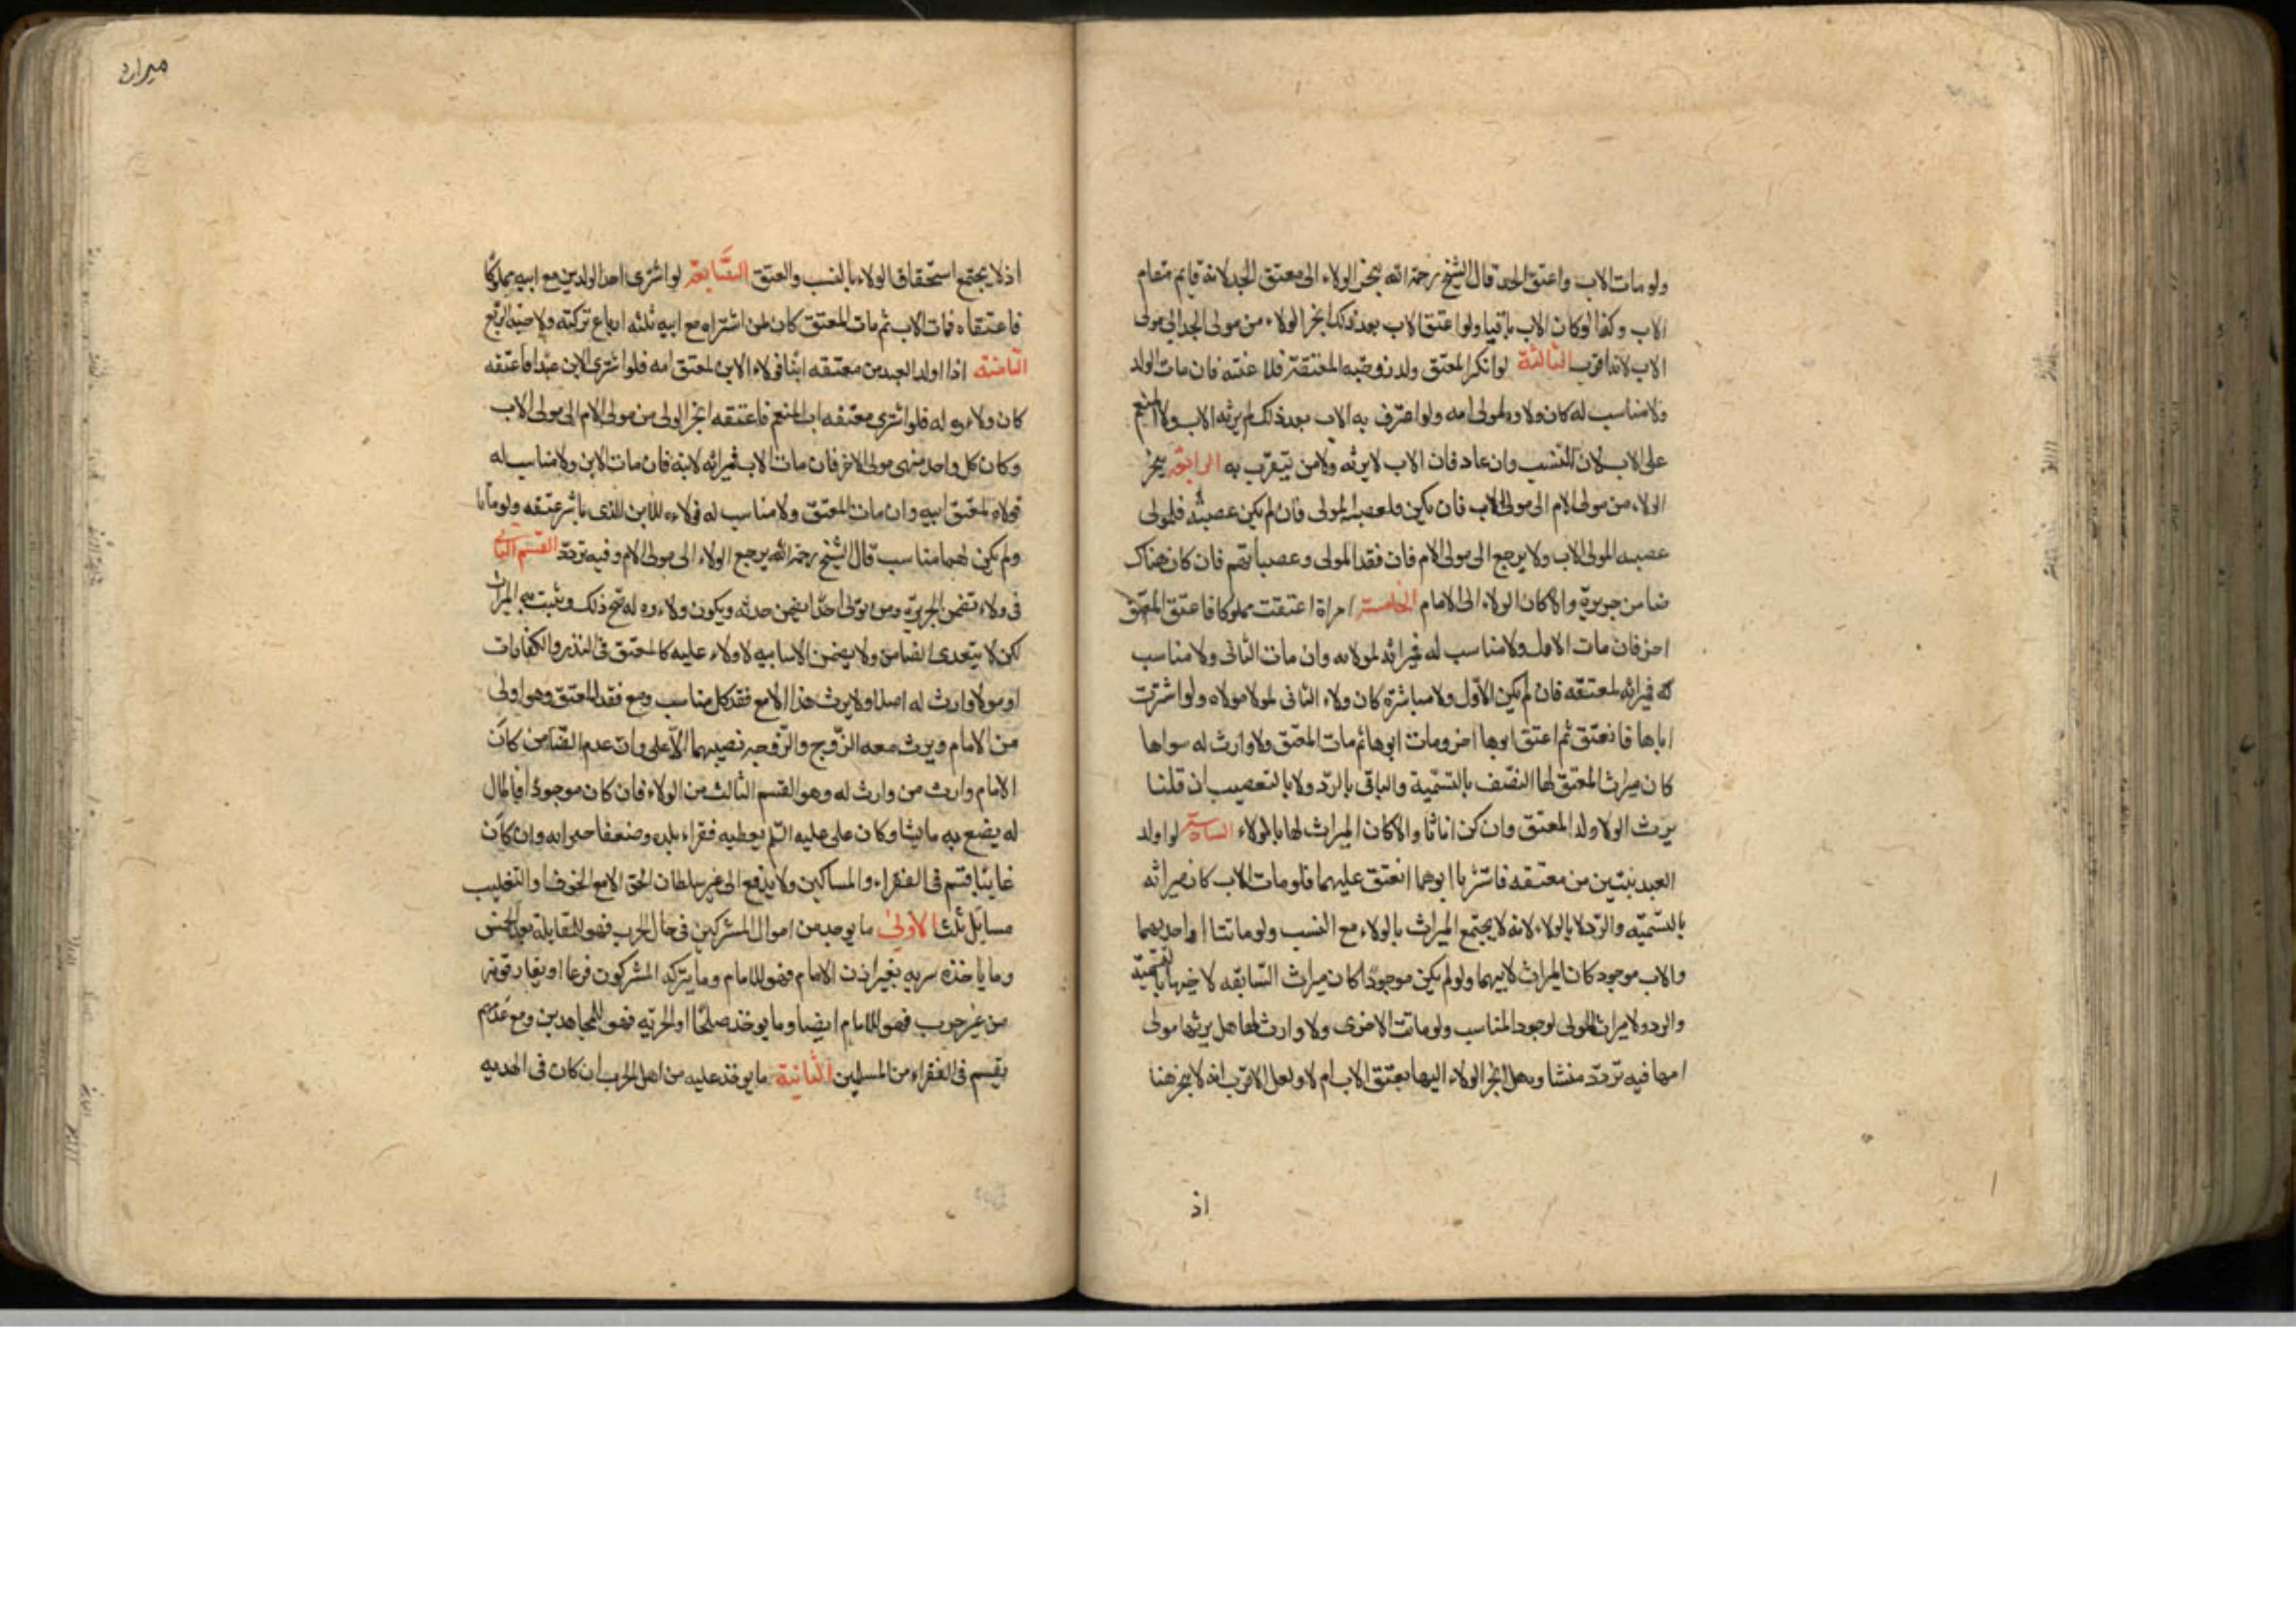 ولو مات الاب واعتق الجد قال الشيخ رحمة الله ينجر الولاء الى معتق الجد لانه قايم مقام
الاب وكذا لو كان الاب باقيا ولو اعتق الاب بعد ذلك انجر الولاء من مولى الجد الى مولى
الاب لانه اقرب الثالثة لو انكر المعتق ولد زوجته المعتقة فلاعنته فان مات الولد
ولا مناسب له كان ولاوه لمولى امه ولو اعترف به الاب بعد ذلك لم يرثه الاب ولا المنعم
على الاب لان النسب وان عاد فان الاب لا يرثه ولا من يتقرب به الرابعة ينجر
الولاء من مولى الام الى مولى الاب فان لم يكن فلعصبة المولى فان لم يكن عصبته فلمولى
عصبه المولى الاب ولا يرجع الى مولى الام فان فقد المولى وعصباتهم فان كان هناك
ضامن جريرة والا كان الولاء الى الامام الخامسة امراة اعتقت مملوكا فاعتق المعتق
اخر فان مات الاول ولا مناسب له فميراثه لمولاته وان مات الثانى ولا مناسب
له فميراثه لمعتقه فان لم يكن الاول ولا مباشرة كان ولاء الثانى لمولا مولاه ولو اشترت
اباها فانعتق ثم اعتق ابوها اخر ومات ابوها ثم مات المعتق ولا وارث له سواها
كان ميراث المعتق لها النصف بالتسمية والباقى بالرد ولا بالتعصيب ان قلنا
يرث الولا ولد المعتق وان كن اناثا والا كان الميراث لها بالولاء السادسة لو اولد
العبد بنتين من معتقه فاشتريا ابوهما انعتق عليهما فلو مات الاب كان ميراثه
بالتسميه والرد لا بالولاء لانه لا يجتمع الميراث بالولاء مع النسب ولو ماتتا او احديهما
والاب موجود كان الميراث لابيهما ولو لم يكن موجودا كان ميراث السابقه لاختها بالتسمية
والرد ولا ميراث للمولى لوجود المناسب ولو ماتت الاخرى ولا وارث لها هل يرثها مولى
امها فيه تردد منشا وهل انجر الولاء اليها بعتق الاب ام لا ولعل الاقرب انه لا ينجر هنا
اذ
ميراث
اذ لا يجتمع استحقاق الولاء بالنسب والعتق السابعة لو اشترى احد الولدين مع ابيه مملوكا
فاعتقاه فمات الاب ثم مات المعتق كان لمن اشتراه مع ابيه ثلثه ارباع تركته ولاخيه الربع
الثامنة اذا اولد العبد من معتقه ابنا فولاء الابن لمعتق امه فلو اشترى الابن عبدا فاعتقه
كان ولاءه له فلو اشترى معتقه اب المنعم فاعتقه انجر الولى من مولى الام الى مولى الاب
وكان كل واحد منهى مولى الاخر فان مات الاب فميراثه لابنه فان مات الابن ولا مناسب له
فولاه لمعتق ابيه وان مات المعتق ولا مناسب له فولاءه للابن الذى باشر عتقه ولو ماتا
ولم يكن لهما مناسب قال الشيخ رحمة الله يرجع الولاء الى مولى الام وفيه تردد القسم الثانى
فى ولاء تضمن الجريرة ومن تولى احدا يضمن حدثه ويكون ولاءوه له صح ذلك ويثبت به الميراث
لكن لا يتعدى الضامن ولا يضمن الا سايبه لا ولاء عليه كالمعتق فى النذر والكفارات
او مولا وارث له اصلا ولا يرث هذا الا مع فقد كل مناسب ومع فقد المعتق وهو اولى
من الامام ويرث معه الزوج والزوجه نصيبهما الاعلى وان عدم الضامن كان
الامام وارث من وارث له وهو القسم الثالث من الولاء فان كان موجودا فالمال
له يصنع به ما يشا وكان على عليه السلم يعطيه فقراء بلده وضعفا جيرانه وان كان
غايبا قسم فى الفقراء والمساكين ولا يدفع الى غير سلطان الحق الا مع الخوف او التغليب
مسايل ثلث الاولى ما يوجد من اموال المشركين فى حال الحرب فهو للمقابلة بعد الخمس
وما ياخذه سريه بغير اذن الامام فهو للامام وما يتركه المشركون فزعا او يفارقونه
من غير حرب فهو للامام ايضا وما يوخذ صلحا او الجزيه فهو للمجاهدين ومع عدمهم
يقسم فى الفقراء من المسلمين الثانية ما يوخذ عليه من اهل الحرب ان كان فى الهدنه